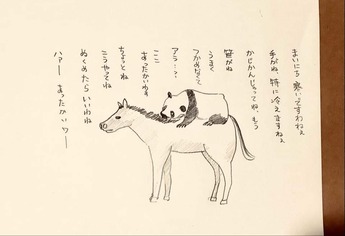 まいにち 寒いですわねぇ
手がね、特に冷えますねぇ
かじかんじゃってね、もう
笹がね
うまく
つかめなくて
アラ…？
ここ
あったかいわヨ
ちょっとね
こうやってね
ぬくめたら いいわね
ハァー あったかいワー